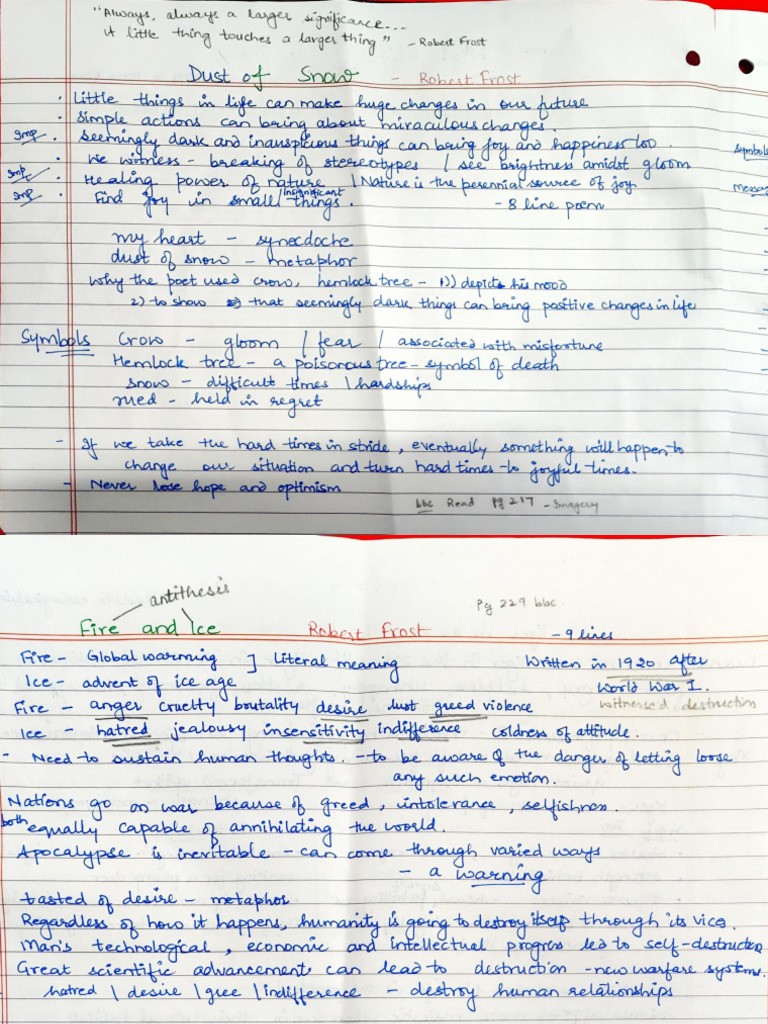 "Always, always a larger significance...
A little thing touches a larger thing" - Robert Frost
Dust of Snow - Robert Frost
· Little things in life can make huge changes in our future
· Simple actions can bring about miraculous changes.
Imp · Seemingly dark and inauspicious things can bring joy and happiness too.
· We witness - breaking of stereotypes / see brightness amidst gloom
Symbols
Imp · Healing power of nature / Nature is the perennial source of joy
Imp · Find joy in small / insignificant things. - 8 line poem
my heart - synecdoche
dust of snow - metaphor
Why the poet used crow, hemlock tree - 1) depicts his mood
2) to show that seemingly dark things can bring positive changes in life
Symbols Crow - gloom / fear / associated with misfortune
Hemlock tree - a poisonous tree - symbol of death
snow - difficult times / hardships
rued - held in regret
- If we take the hard times in stride, eventually something will happen to
change our situation and turn hard times to joyful times.
- Never lose hope and optimism
bbc Read Pg 217 - Imagery
antithesis
Pg 229 bbc
Fire and Ice Robert Frost - 9 lines
Fire - Global warming ] Literal meaning Written in 1920 after
Ice - advent of ice age World War I.
Fire - anger cruelty brutality desire lust greed violence witnessed destruction
Ice - hatred jealousy insensitivity indifference coldness of attitude.
- Need to sustain human thoughts. - to be aware of the danger of letting loose
any such emotion.
Nations go on war because of greed, intolerance, selfishness.
both equally capable of annihilating the world.
Apocalypse is inevitable - can come through varied ways
- a warning
tasted of desire - metaphor
Regardless of how it happens, humanity is going to destroy itself through its vice.
Man's technological, economic and intellectual progress led to self-destruction
Great scientific advancements can lead to destruction - new warfare systems.
hatred / desire / gree / indifference - destroy human relationships